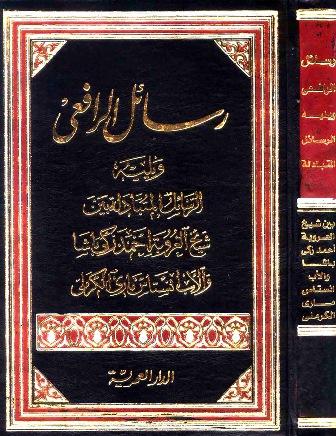 رسائل الرافعي
ويليه
الرسائل المتبادلة بين
شيخ العروبة أحمد زكي باشا
والأب أنستاس ماري الكرملي
الدار العمرية
رسائل
الرافعي
ويليه
الرسائل
المتبادلة
بين شيخ
العروبة
أحمد زكي
باشا
والأب
أنستاس
ماري
الكرملي